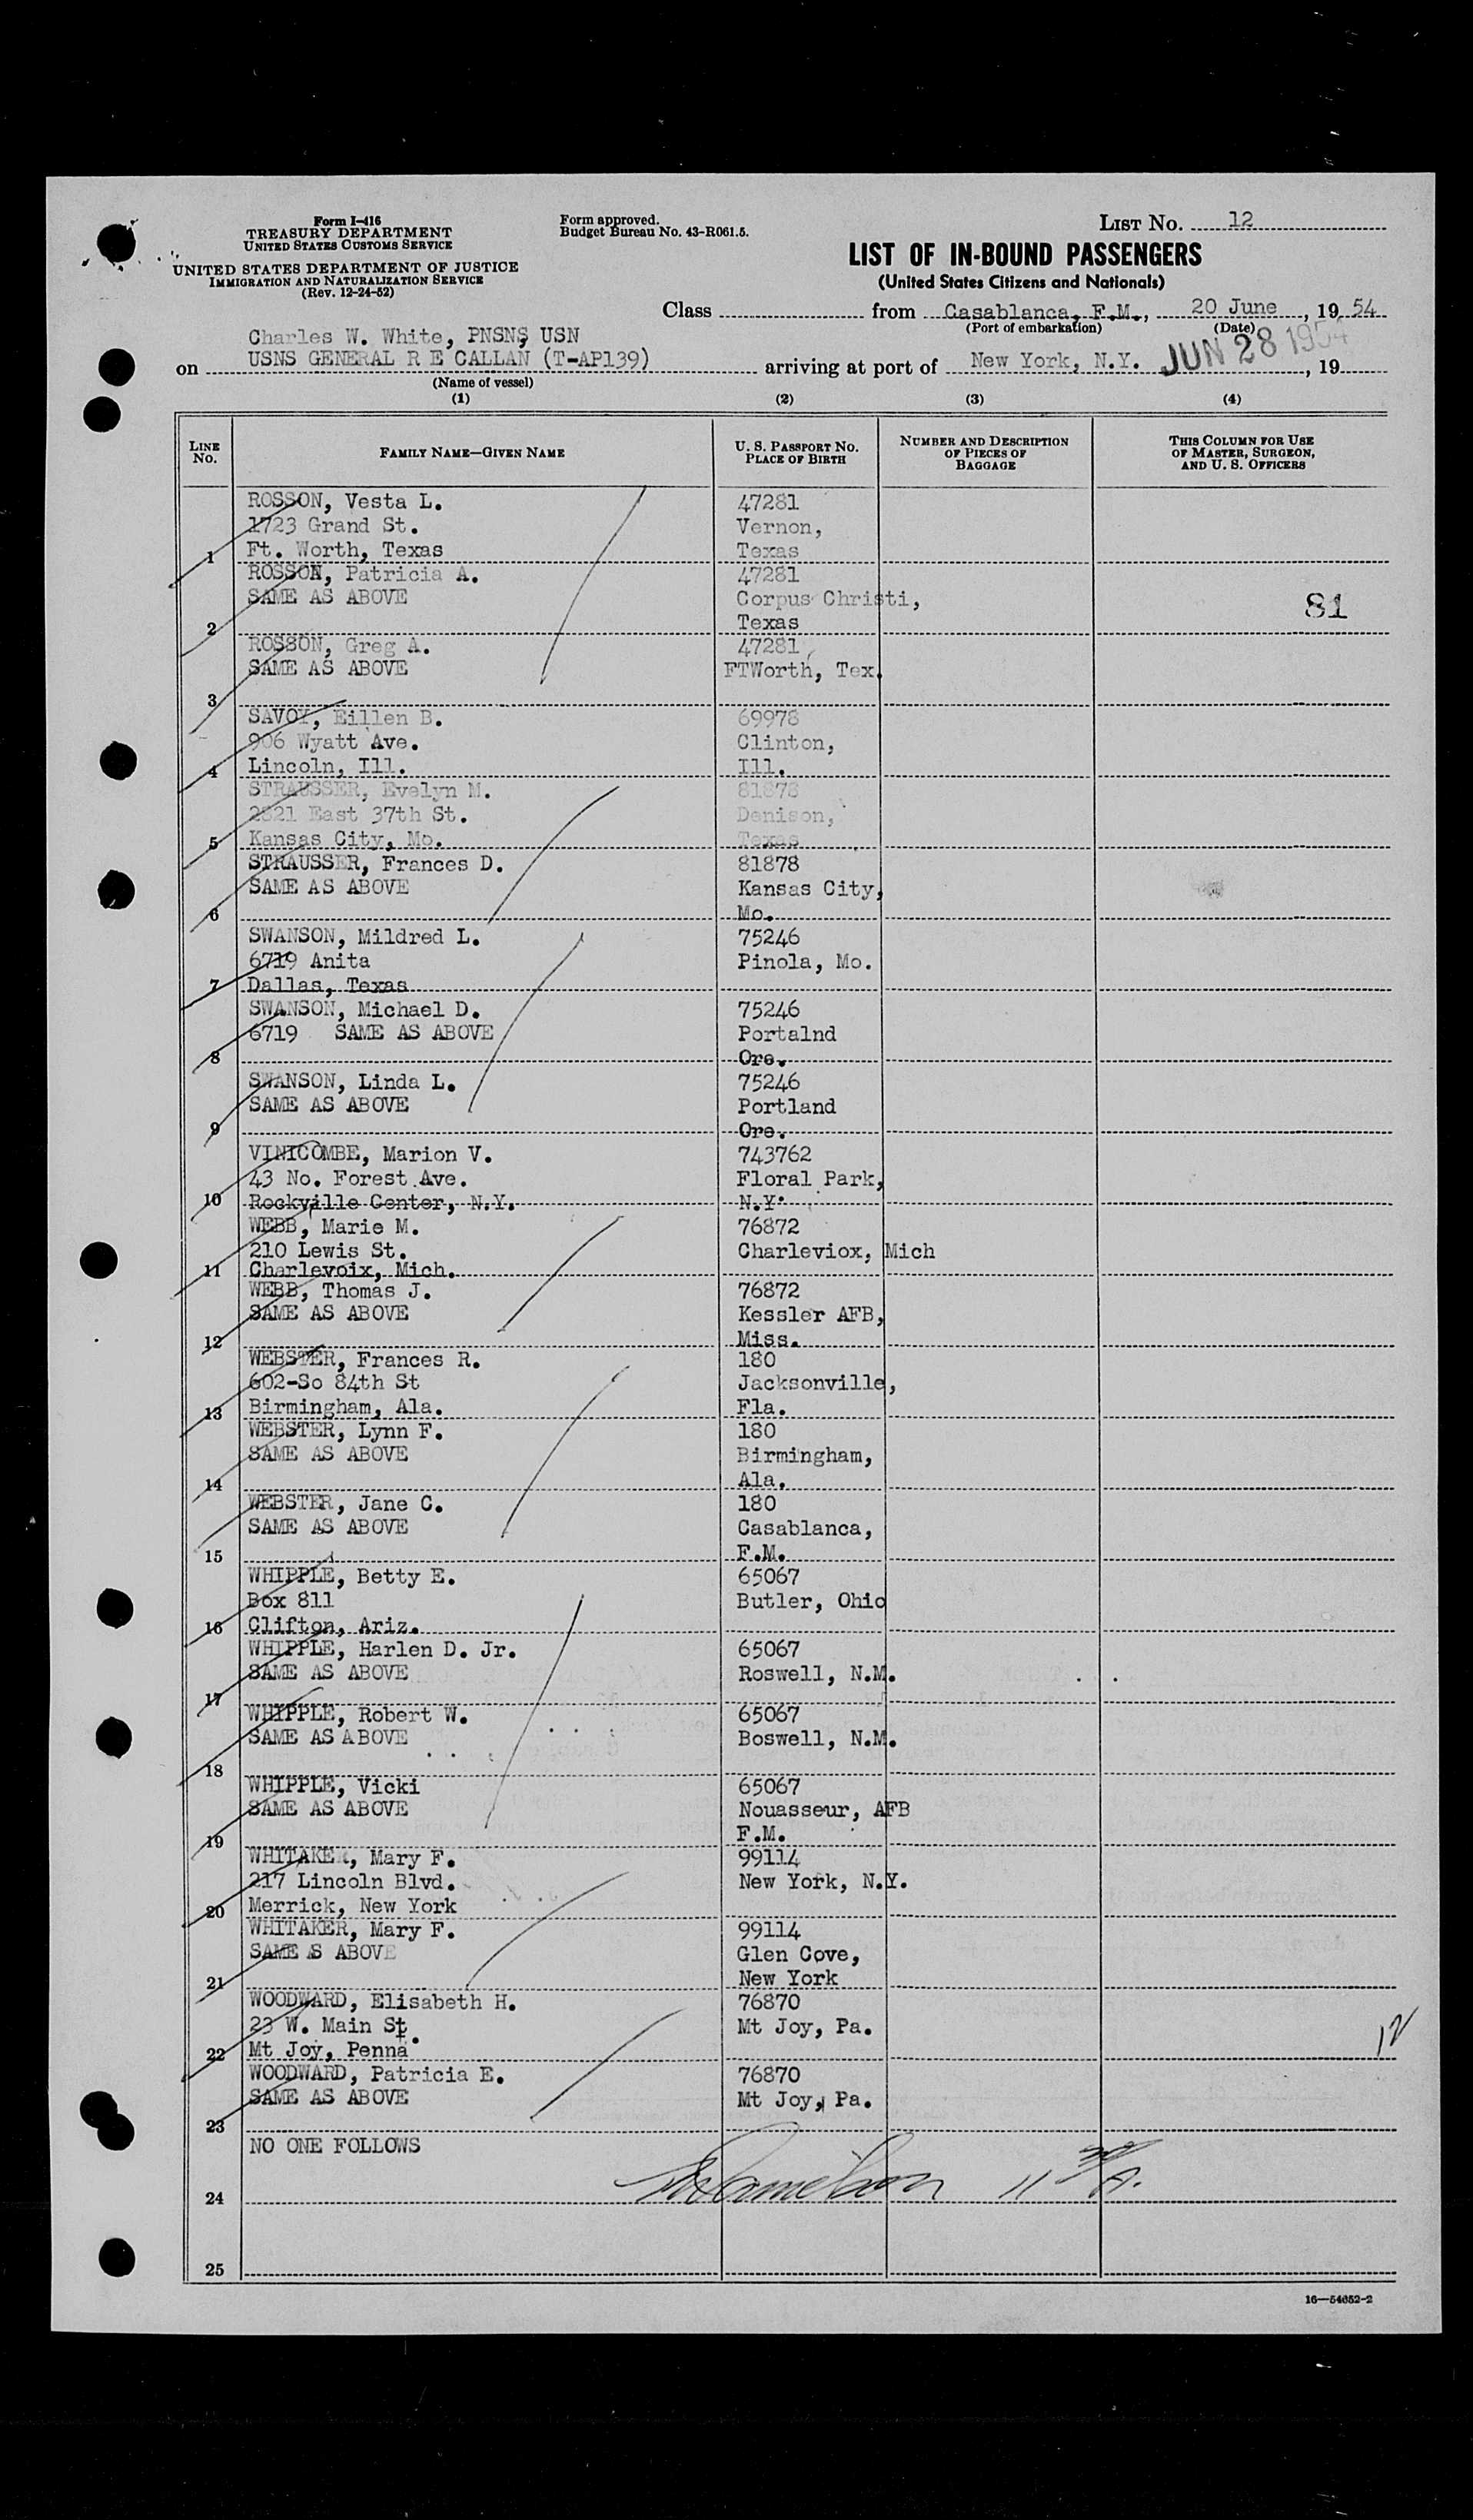 Form I-416
TREASURY DEPARTMENT
UNITED STATES CUSTOMS SERVICE
UNITED STATES DEPARTMENT OF JUSTICE
IMMIGRATION AND NATURALIZATION SERVICE
(Rev. 12-24-52)
Form approved.
Budget Bureau No. 43-R061.5.
LIST NO. 12
LIST OF IN-BOUND PASSENGERS
(United States Citizens and Nationals)
Class from Casablanca, F.M., 20 June, 19 54
(Port of embarkation) (Date)
Charles W. White, PNSN, USN
on USNS GENERAL R E CALLAN (T-AP139) arriving at port of New York, N.Y. JUN 28 1954, 19
(Name of vessel)
(1) (2) (3) (4)
LINE NO. FAMILY NAME—GIVEN NAME U. S. PASSPORT NO. PLACE OF BIRTH NUMBER AND DESCRIPTION OF PIECES OF BAGGAGE THIS COLUMN FOR USE OF MASTER, SURGEON, AND U. S. OFFICERS
ROSSON, Vesta L. 47281
1723 Grand St. Vernon,
1 Ft. Worth, Texas Texas
ROSSON, Patricia A. 47281
SAME AS ABOVE Corpus Christi, 81
2 Texas
ROSSON, Greg A. 47281
SAME AS ABOVE FTWorth, Tex.
3
SAVOY, Eillen B. 69978
906 Wyatt Ave. Clinton,
4 Lincoln, Ill. Ill.
STRAUSSER, Evelyn M. 81878
2821 East 37th St. Denison,
5 Kansas City, Mo. Texas
STRAUSSER, Frances D. 81878
SAME AS ABOVE Kansas City,
6 Mo.
SWANSON, Mildred L. 75246
6719 Anita Pinola, Mo.
7 Dallas, Texas
SWANSON, Michael D. 75246
6719 SAME AS ABOVE Portalnd
8 Ore.
SWANSON, Linda L. 75246
SAME AS ABOVE Portland
9 Ore.
VINICOMBE, Marion V. 743762
43 No. Forest Ave. Floral Park,
10 Rockville Center, N.Y. N.Y.
WEBB, Marie M. 76872
210 Lewis St. Charleviox, Mich
11 Charlevoix, Mich.
WEBB, Thomas J. 76872
SAME AS ABOVE Kessler AFB,
12 Miss.
WEBSTER, Frances R. 180
602-So 84th St Jacksonville,
13 Birmingham, Ala. Fla.
WEBSTER, Lynn F. 180
SAME AS ABOVE Birmingham,
14 Ala.
WEBSTER, Jane C. 180
SAME AS ABOVE Casablanca,
15 F.M.
WHIPPLE, Betty E. 65067
Box 811 Butler, Ohio
16 Clifton, Ariz.
WHIPPLE, Harlen D. Jr. 65067
SAME AS ABOVE Roswell, N.M.
17
WHIPPLE, Robert W. 65067
SAME AS ABOVE Boswell, N.M.
18
WHIPPLE, Vicki 65067
SAME AS ABOVE Nouasseur, AFB
19 F.M.
WHITAKER, Mary F. 99114
217 Lincoln Blvd. New York, N.Y.
20 Merrick, New York
WHITAKER, Mary F. 99114
SAME S ABOVE Glen Cove,
21 New York
WOODWARD, Elisabeth H. 76870
23 W. Main St. Mt Joy, Pa.
22 Mt Joy, Penna 12
WOODWARD, Patricia E. 76870
SAME AS ABOVE Mt Joy, Pa.
23
NO ONE FOLLOWS
24 11 30 A.
25
16—54652-2